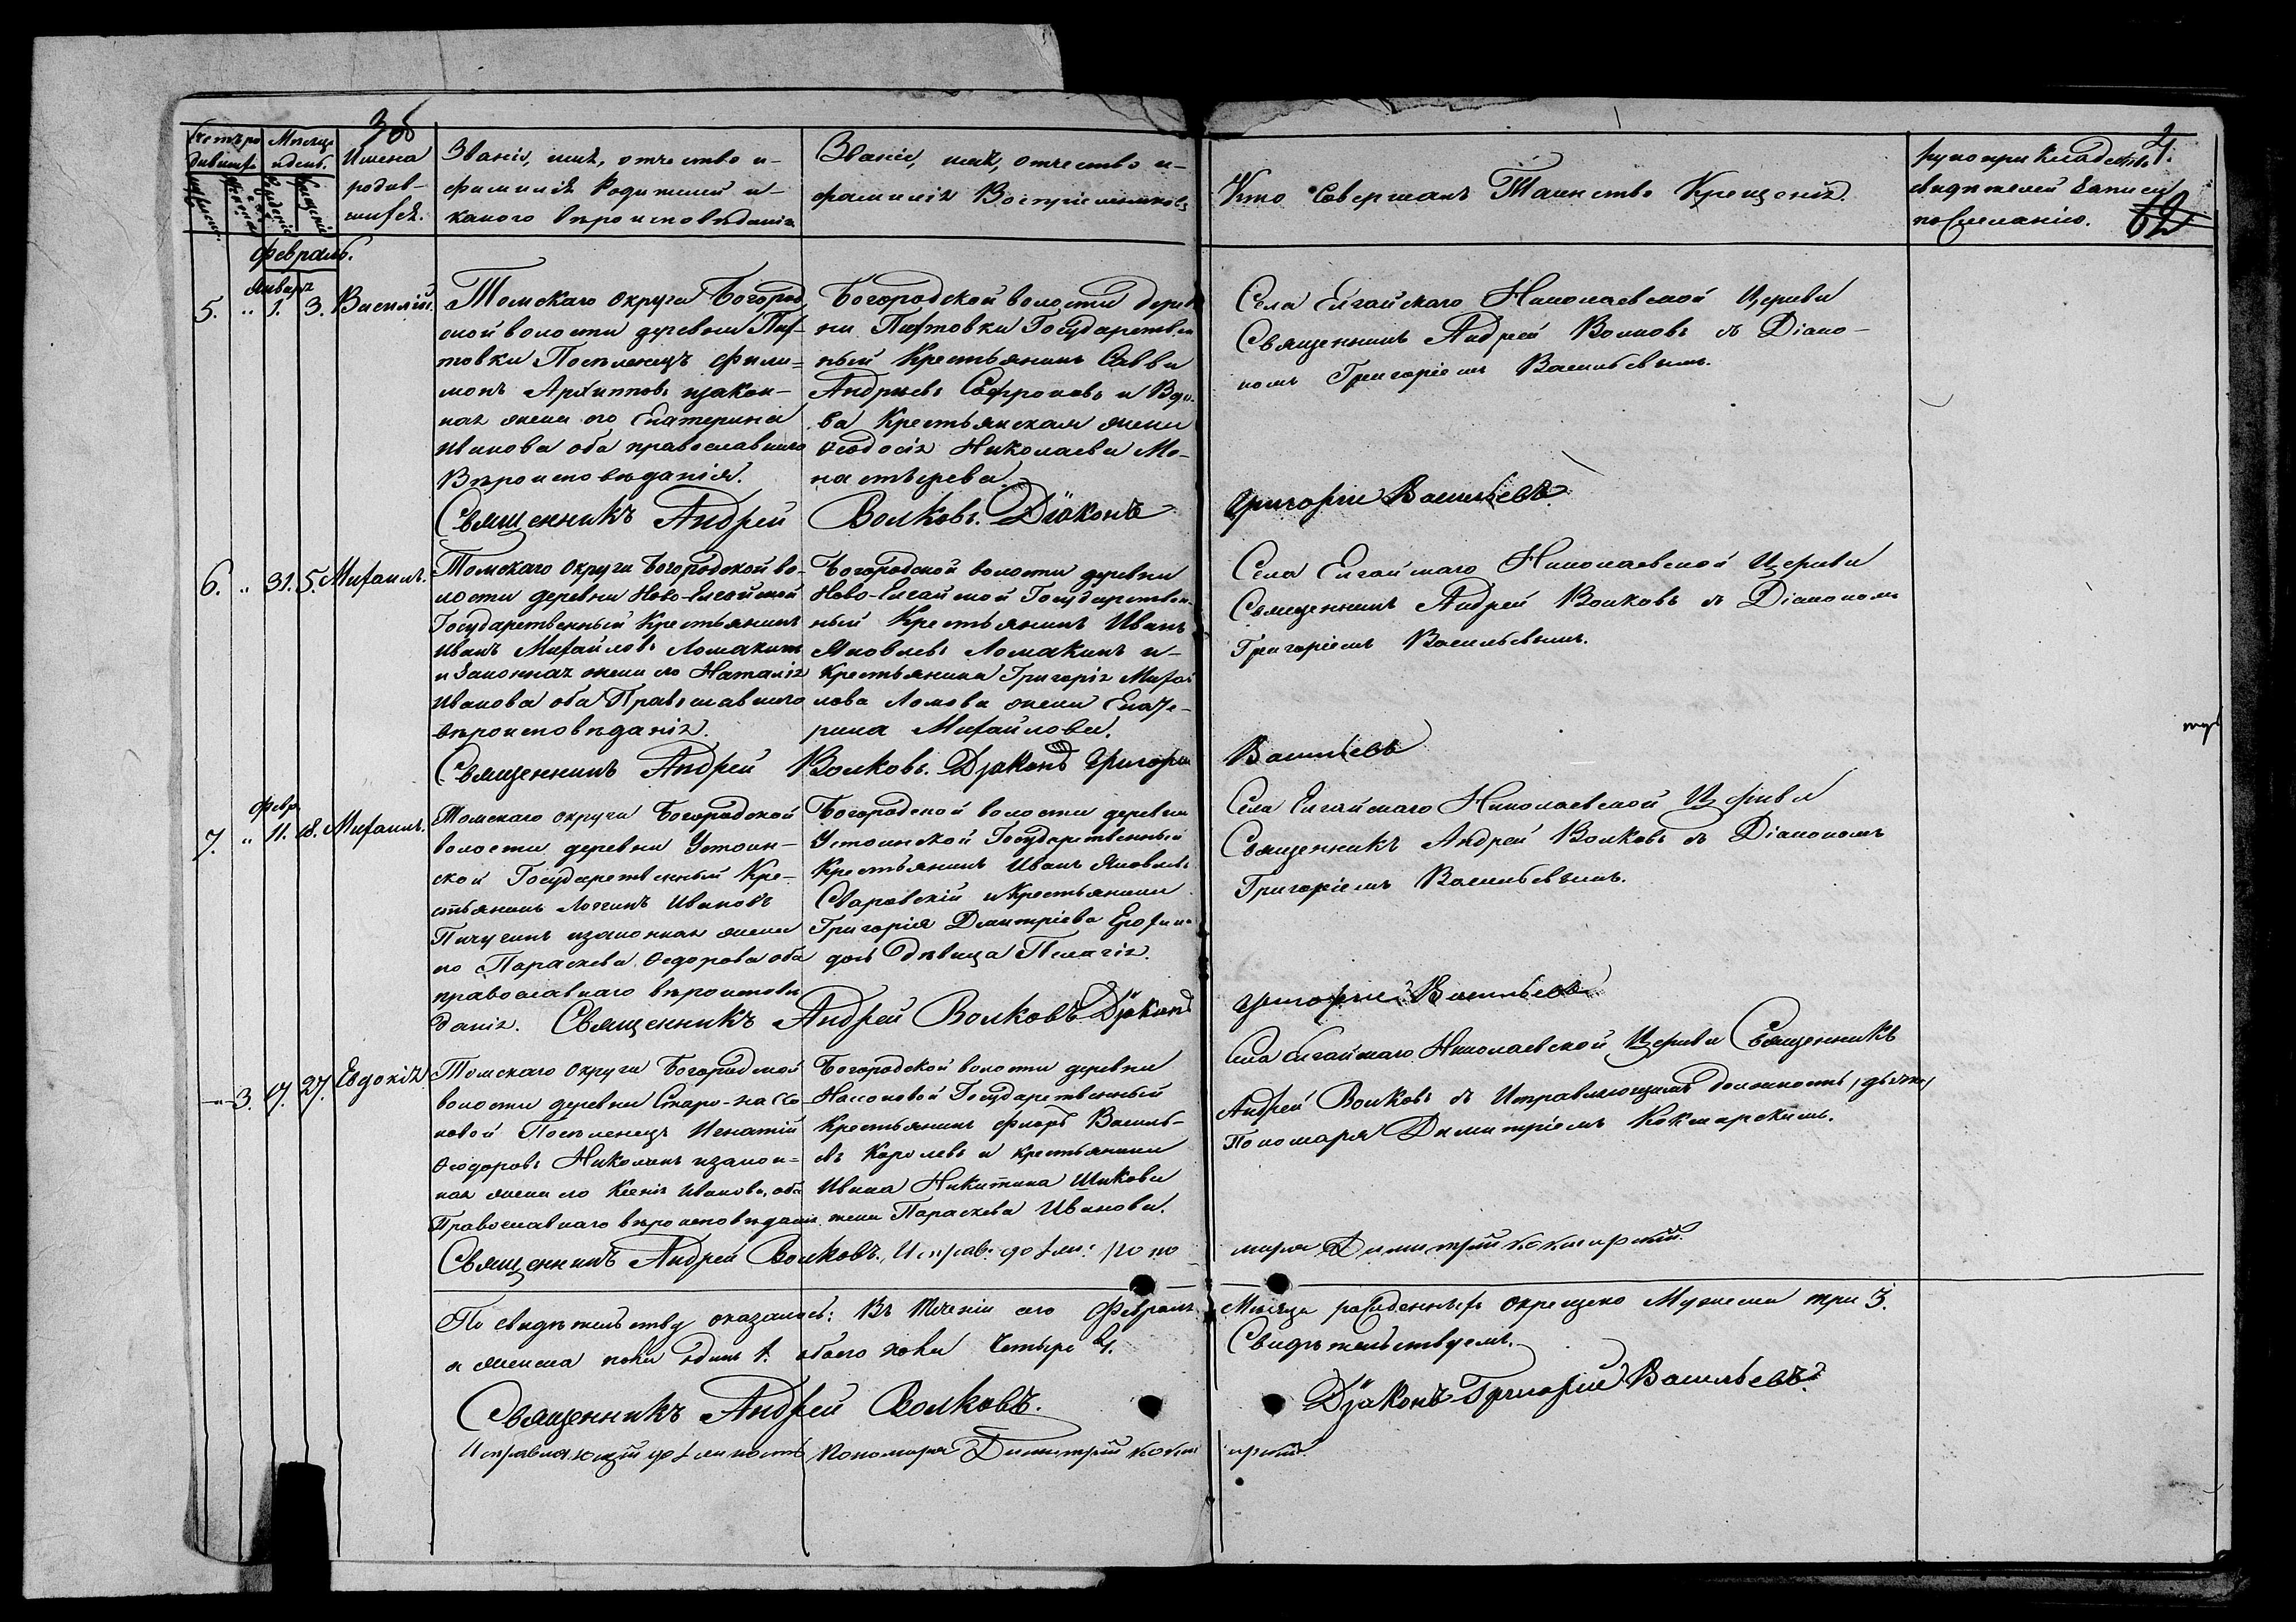 3 об
Счетъ родившихся
Мѣсяцъ и день
Имена родив-
шихся.
Званіе, имя, отчество и-
фамилія Родителей и-
какого вѣроисповѣданія
Званіе, имя, отчество и-
фамилія Воспріемниковъ
Кто Совершалъ Таинство Крещенія.
рукоприкладство
свидѣтелей записи
по желанію.
4.
62
Февраль.
Января
5. " 1. 3. Василій.
Томскаго Округа Богород
ской волости деревни Пих-
товки Поселенецъ Фили=
монъ Архиповъ изакон-
ная жена его Екатерина
Иванова оба православнаго
Вѣроисповѣданія.
Богородской волости дерев
ни Пихтовки Государствен
ный Крестьянинъ Савва
Андреевъ Софроновъ и Вдо-
ва Крестьянская жена
Ѳеодосія Николаева Мо-
настырева.
Села Елгайскаго Николаевской Церкви
Священникъ Андрей Волковъ съ Діако-
номъ Григоріемъ Васильевымъ.
Священникъ Андрей Волковъ. Діаконъ Григорій Васильевъ.
6. " 31. 5. Михаилъ.
Томскаго Округа Богородской во-
лости деревни Ново-Елгайской
Государственный Крестьянинъ
Иванъ Михайловъ Ломакинъ
и Законная жена его Наталія
Иванова оба Православнаго
вѣроисповѣданія.
Богородской волости деревни
Ново-Елгайской Государствен-
ный Крестьянинъ Иванъ
Яковлевъ Ломакинъ и-
Крестьянина Григорія Михай
лова Ломова жена Екате-
рина Михайлова.
Села Елгайскаго Николаевской Церкви
Священникъ Андрей Волковъ съ Діакономъ
Григоріемъ Васильевымъ.
Священникъ Андрей Волковъ. Діаконъ Григорій Васильевъ
Февр.
7. " 11. 18. Михаилъ.
Томскаго Округа Богородской
волости деревни Устоин-
ской Государственный Кре-
стьянинъ Логгинъ Ивановъ
Пичугинъ изаконная жена
его Параскева Ѳедорова оба
православнаго вѣроисповѣ
данія.
Богородской волости деревни
Устоинской Государственный
Крестьянинъ Иванъ Яковлевъ
Сваровскій и Крестьянина
Григорія Дмитріева
дочь дѣвица Пелагія.
Села Елгайскаго Николаевской Церкви
Священникъ Андрей Волковъ съ Діакономъ
Григоріемъ Васильевымъ.
Священникъ Андрей Волковъ Діаконъ Григорій Васильевъ
-"- 3. 17. 27. Евдокія
Томскаго Округа Богородской
волости деревни Старо-Насо
новой Поселенецъ Игнатій
Ѳеодоровъ изакон=
ная жена его Ксенія Иванова, оба
Православнаго вѣроисповѣданія
Богородской волости деревни
Насоновой Государственный
Крестьянинъ Флоръ Василь-
евъ Королевъ и крестьянина
Ивана Никитина Шикова
жена Параскева Иванова.
Села Елгайскаго Николаевской Церкви Священникъ
Андрей Волковъ съ Исправляющимъ должность
Пономаря Димитріемъ Кокшарскимъ.
Священникъ Андрей Волковъ., Исправ: долж: поно маря Димитрій Кокшарскій.
По свидѣтельству оказалось: Въ теченіи сего Февраля Мѣсяца рожденныхъ Окрещено Мужеска три 3.
а женска пола одинъ 1. обоего пола четыре 4. Свидѣтельствуемъ.
Священникъ Андрей Волковъ. Діаконъ Григорій Васильевъ.
Исправляющій должность Пономаря Димитрій Кокшарскій